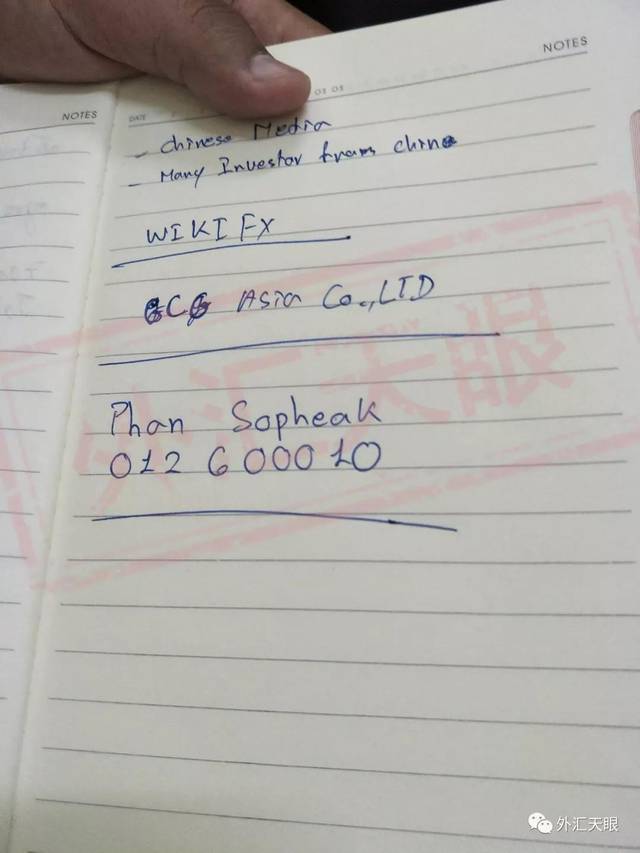 NOTES
NOTES
DATE
- Chinese Media
- Many Investor from China
WIKIFX
Asia Co.,LTD
Phan Sopheak
012 600010
外汇天眼
外汇天眼